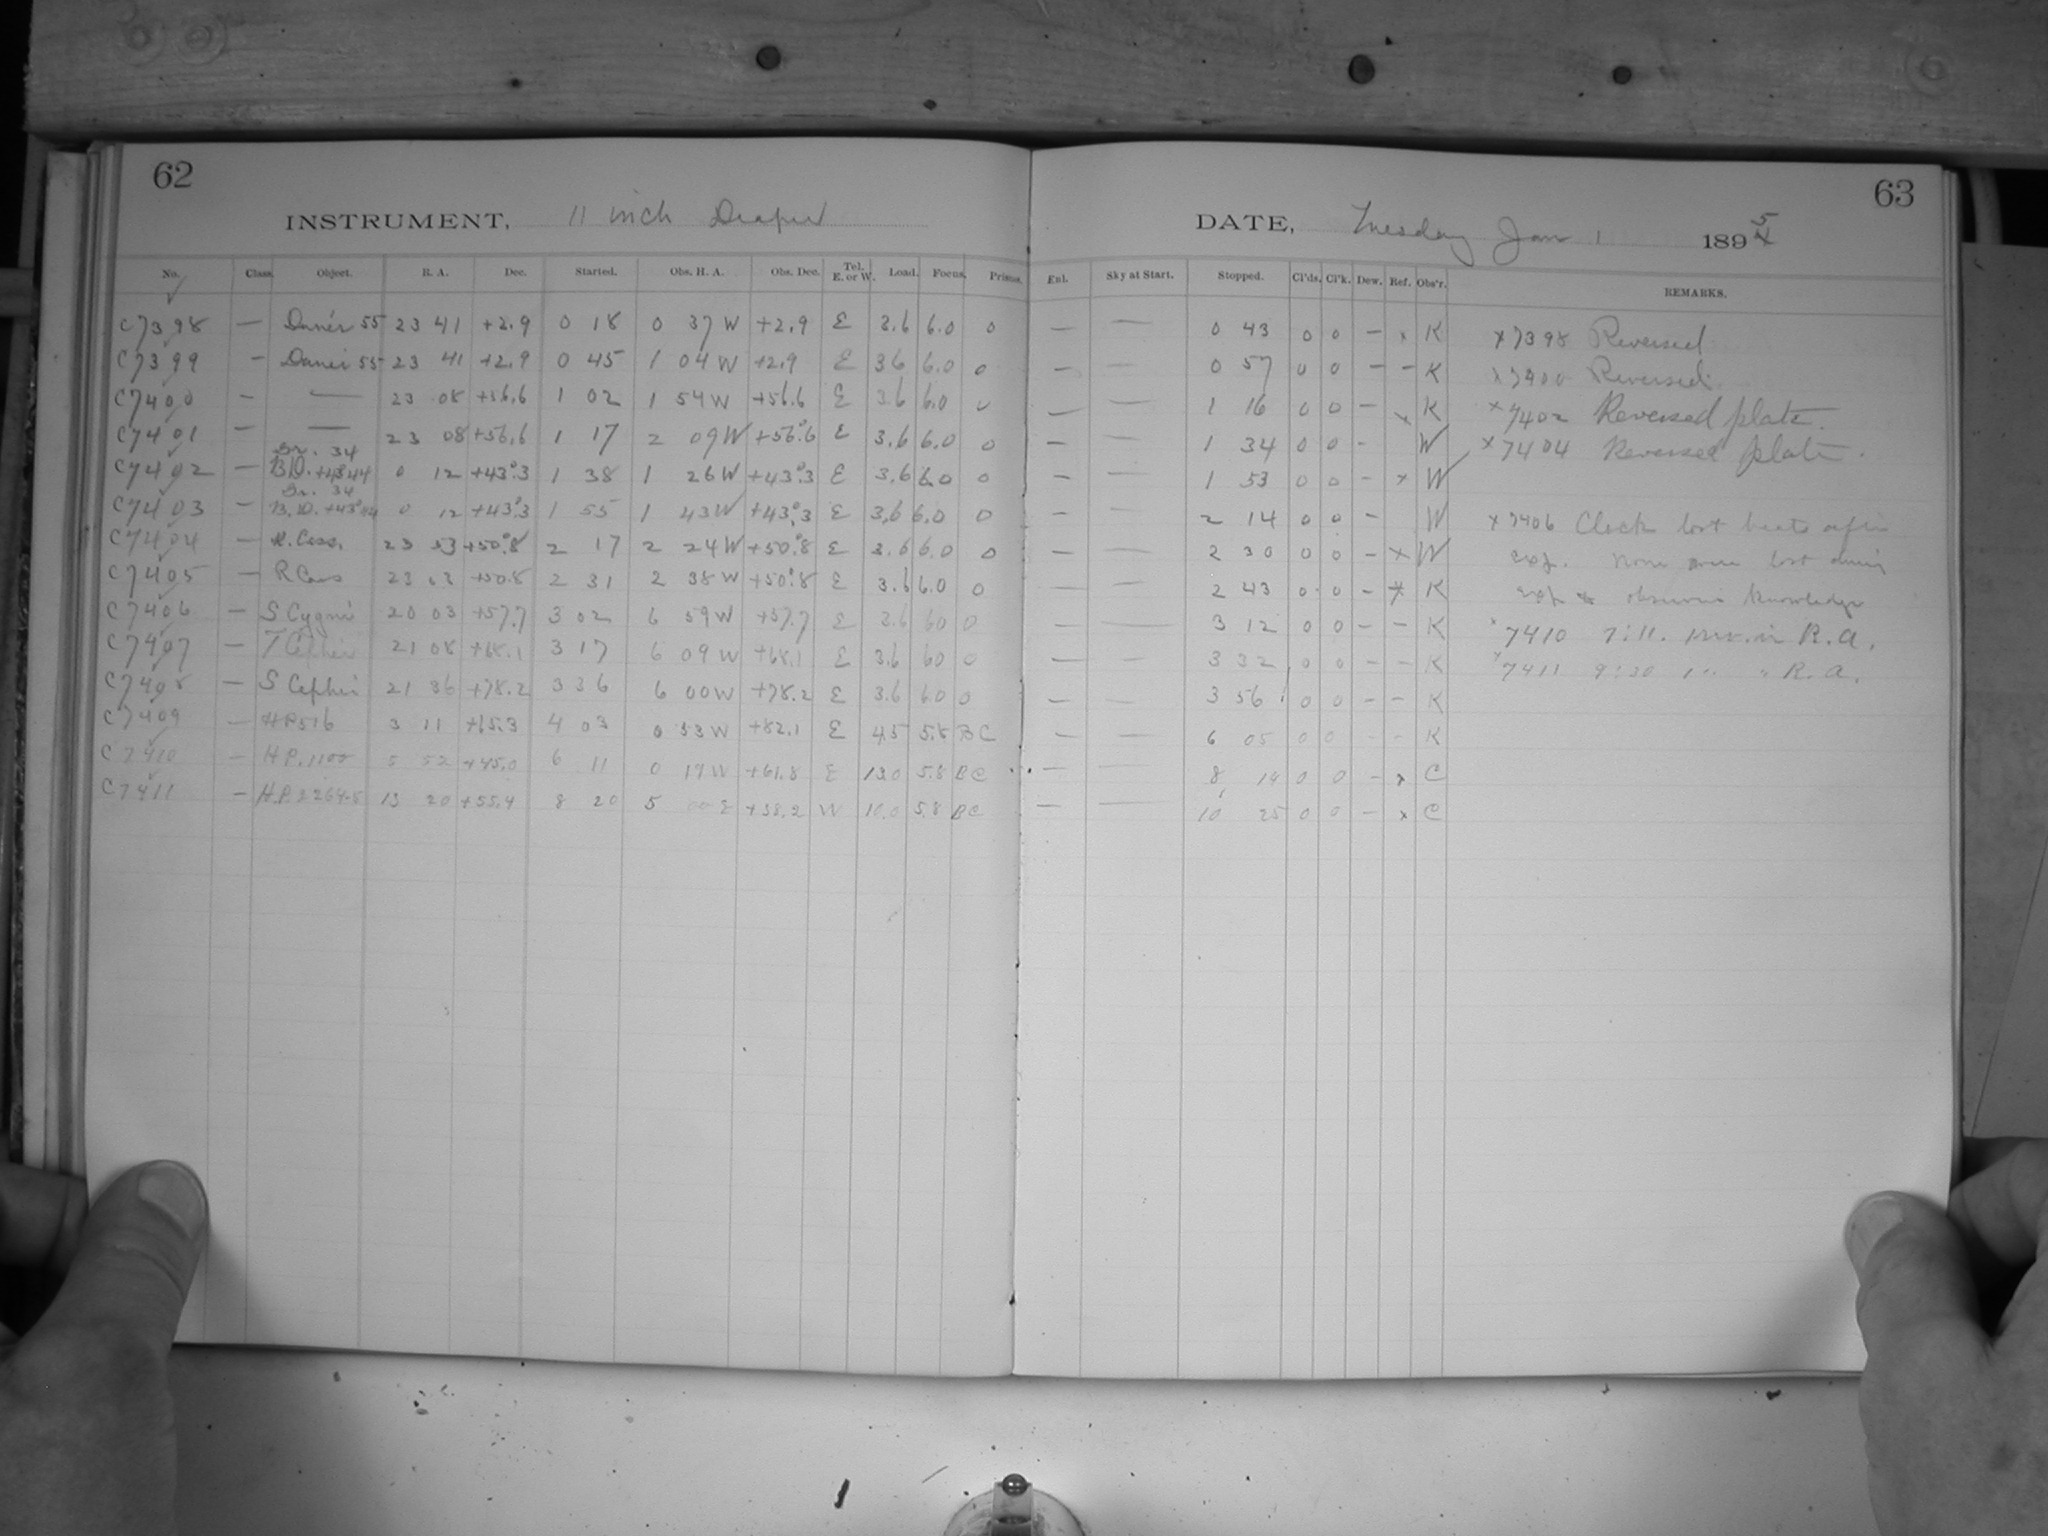 62
INSTRUMENT, 11 inch Draper
No. Class. Object. R. A. Dec. Started. Obs. H. A. Obs. Dec. Tel. E. or W. Load. Focus. Prisms.
C7398 — Dunér 55 23 41 +2.9 0 18 0 37 W +2.9 E 3.6 6.0 0
C7399 — Dunér 55 23 41 +2.9 0 45 1 04 W +2.9 E 3.6 6.0 0
C7400 — — 23 08 +56.6 1 02 1 54 W +56.6 E 3.6 6.0 0
C7401 — — 23 08 +56.6 1 17 2 09 W +56.6 E 3.6 6.0 0
C7402 — Br. 34 B.D. +43°44 0 12 +43°.3 1 38 1 26 W +43°.3 E 3.6 6.0 0
C7403 — Br. 34 B.D. +43°44 0 12 +43°.3 1 55 1 43 W +43°.3 E 3.6 6.0 0
C7404 — R. Cass. 23 53 +50°.8 2 17 2 24 W +50°.8 E 3.6 6.0 0
C7405 — R Cass 23 53 +50.8 2 31 2 38 W +50°.8 E 3.6 6.0 0
C7406 — S Cygni 20 03 +57.7 3 02 6 59 W +57.7 E 3.6 6.0 0
C7407 — T Cephei 21 08 +68.1 3 17 6 09 W +68.1 E 3.6 6.0 0
C7408 — S Cephei 21 36 +78.2 3 36 6 00 W +78.2 E 3.6 6.0 0
C7409 — H.P. 516 3 11 +65.3 4 03 0 53 W +82.1 E 4.5 5.8 BC
C7410 — H.P. 1100 5 52 +45.0 6 11 0 19 W +61.8 E 13.0 5.8 BC
C7411 — H.P. 2264.5 13 20 +55.4 8 20 5 00 E +38.2 W 10.0 5.8 BC
63
DATE, Tuesday Jan 1 1895
Enl. Sky at Start. Stopped. Cl'ds. Cl'k. Dew. Ref. Obs'r. REMARKS.
— — 0 43 0 0 — x K x 7398 Reversed
— — 0 57 0 0 — — K x 7400 Reversed
— — 1 16 0 0 — x K x 7402 Reversed plate.
— — 1 34 0 0 — W x 7404 Reversed plate.
— — 1 53 0 0 — x W
— — 2 14 0 0 — W x 7406 Clock lost beats after
— — 2 30 0 0 — x W exp. None were lost during
— — 2 43 0 0 — x K exp. to observer's knowledge
— — 3 12 0 0 — — K x 7410 7:11. 1 rev. in R.A.
— — 3 32 0 0 — — K x 7411 9:20 1 " " R.A.
— — 3 56 0 0 — — K
— — 6 05 0 0 — — K
— — 8 14 0 0 — x C
— — 10 25 0 0 — x C